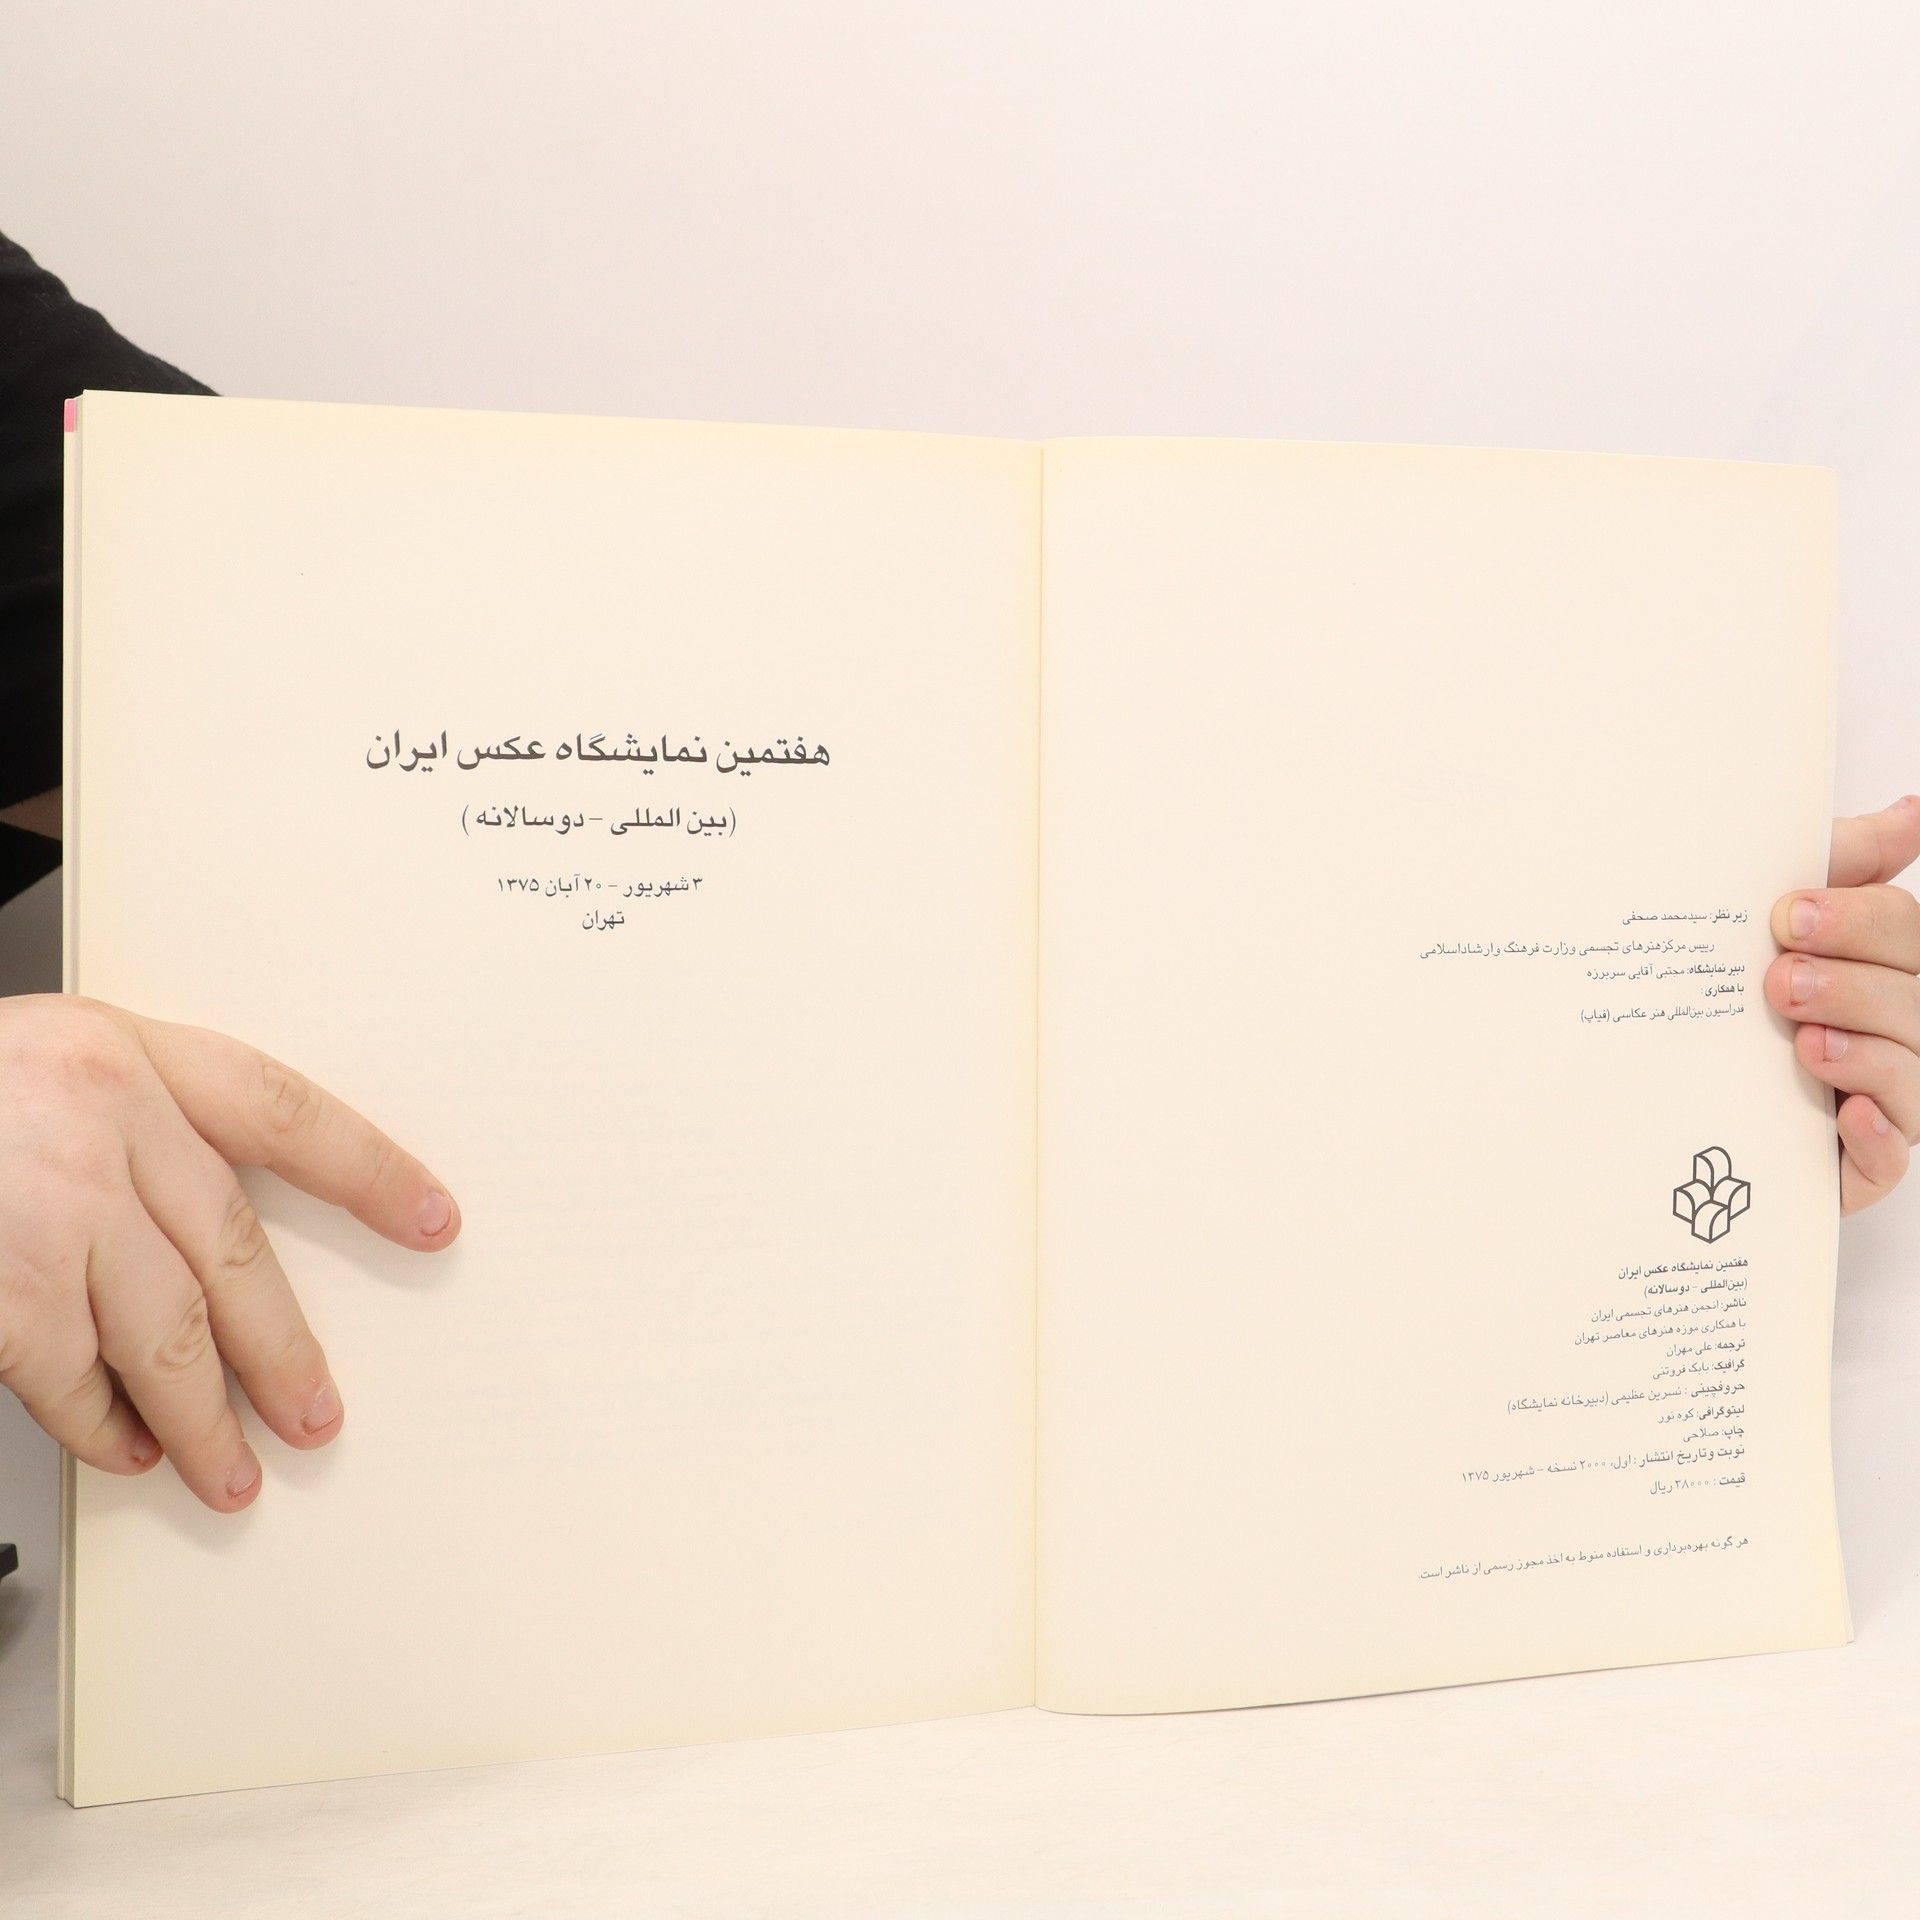 زیر نظر: سیدمحمد صحفی
رییس مرکزهنرهای تجسمی وزارت فرهنگ وارشاداسلامی
دبیر نمایشگاه: مجتبی آقایی سربرزه
با همکاری:
فدراسیون بین‌المللی هنر عکاسی (فیاپ)
هفتمین نمایشگاه عکس ایران
(بین‌المللی - دوسالانه)
ناشر: انجمن هنرهای تجسمی ایران
با همکاری موزه هنرهای معاصر تهران
ترجمه: علی مهران
گرافیک: بابک فروتنی
حروفچینی: نسرین عظیمی (دبیرخانه نمایشگاه)
لیتوگرافی: کوه نور
چاپ: صلاحی
نوبت وتاریخ انتشار: اول، ۲۰۰۰ نسخه - شهریور ۱۳۷۵
قیمت: ۳۸۰۰۰ ریال
هر گونه بهره‌برداری و استفاده منوط به اخذ مجوز رسمی از ناشر است.
هفتمین نمایشگاه عکس ایران
(بین المللی - دوسالانه)
۳ شهریور - ۲۰ آبان ۱۳۷۵
تهران